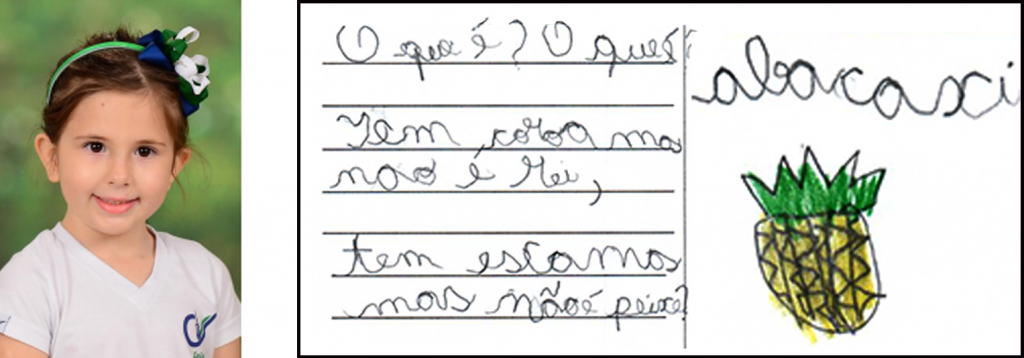 O que é? O que é?
Tem coroa mas
não é rei,
tem escamas
mas não é peixe?
abacaxi